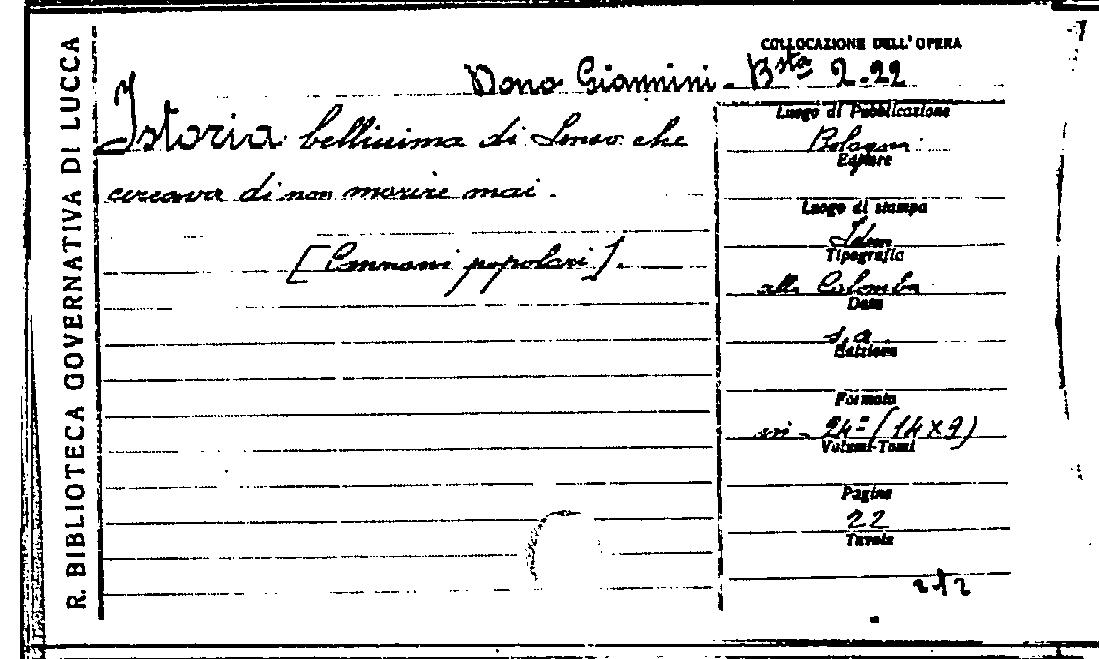 R. BIBLIOTECA GOVERNATIVA DI LUCCA
COLLOCAZIONE DELL'OPERA
Dono Giannini - Bsta 2.22
Istoria bellissima di che
cercava di non morire mai.
[popolari].
Luogo di Pubblicazione
Bologna
Editore
Luogo di stampa
Idem
Tipografia
alla Colomba
Data
s. a.
Edizione
Formato
in - 24° (14 x 9)
Volumi-Tomi
Pagine
22
Tavole